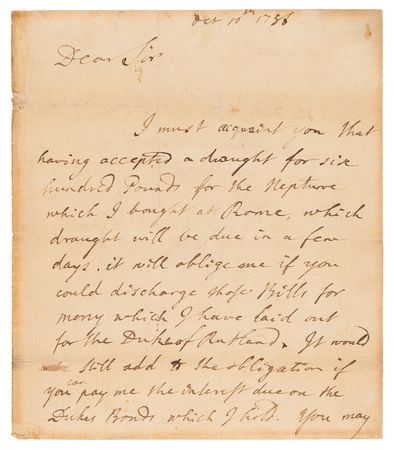 Oct 10th 1786
Dear Sir
I must acquaint you that
having accepted a draught for six
hundred Pounds for the Neptune
which I bought at Rome, which
draught will be due in a few
days. it will oblige me if you
could discharge those Bills for
money which I have laid out
for the Duke of Rutland. It would
still add to the obligation if
you can pay me the interest due on the
Dukes Bonds which I hold. You may